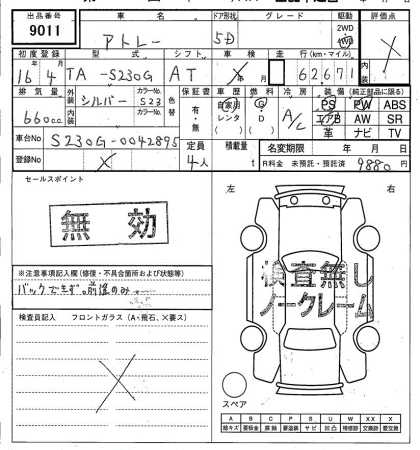 出品番号 車名 ドア形状 グレード 駆動 評価点
9011 アトレー 5D 2WD 4WD 内 外
初度登録 型式 シフト 車検 走行(km・マイル)
16年4月 TA-S230G AT 年 月 62671
排気量 外装 シルバー カラーNo. S23 色替 保証書 車歴 燃料 冷房 装備(純正部品に限る)
660cc 内装 カラーNo. 有・無 自家用 レンタ G・D A/C PS PW ABS
エアB AW SR
革 ナビ TV
車台No S230G-0042895 定員 積載量 名変期限 年 月 日
登録No 4人 t R料金 未預託・預託済 9880円
セールスポイント
無効
左 右
検査無し
ノークレーム
※注意事項記入欄(修復・不具合箇所および状態等)
バックできず。前進のみ。
検査員記入 フロントガラス(A・飛石、×要ス)
スペア
A B C P S U W XX X
線キズ 要板金 腐蝕 要塗装 サビ 凹凸 補修跡 交換跡 要交換